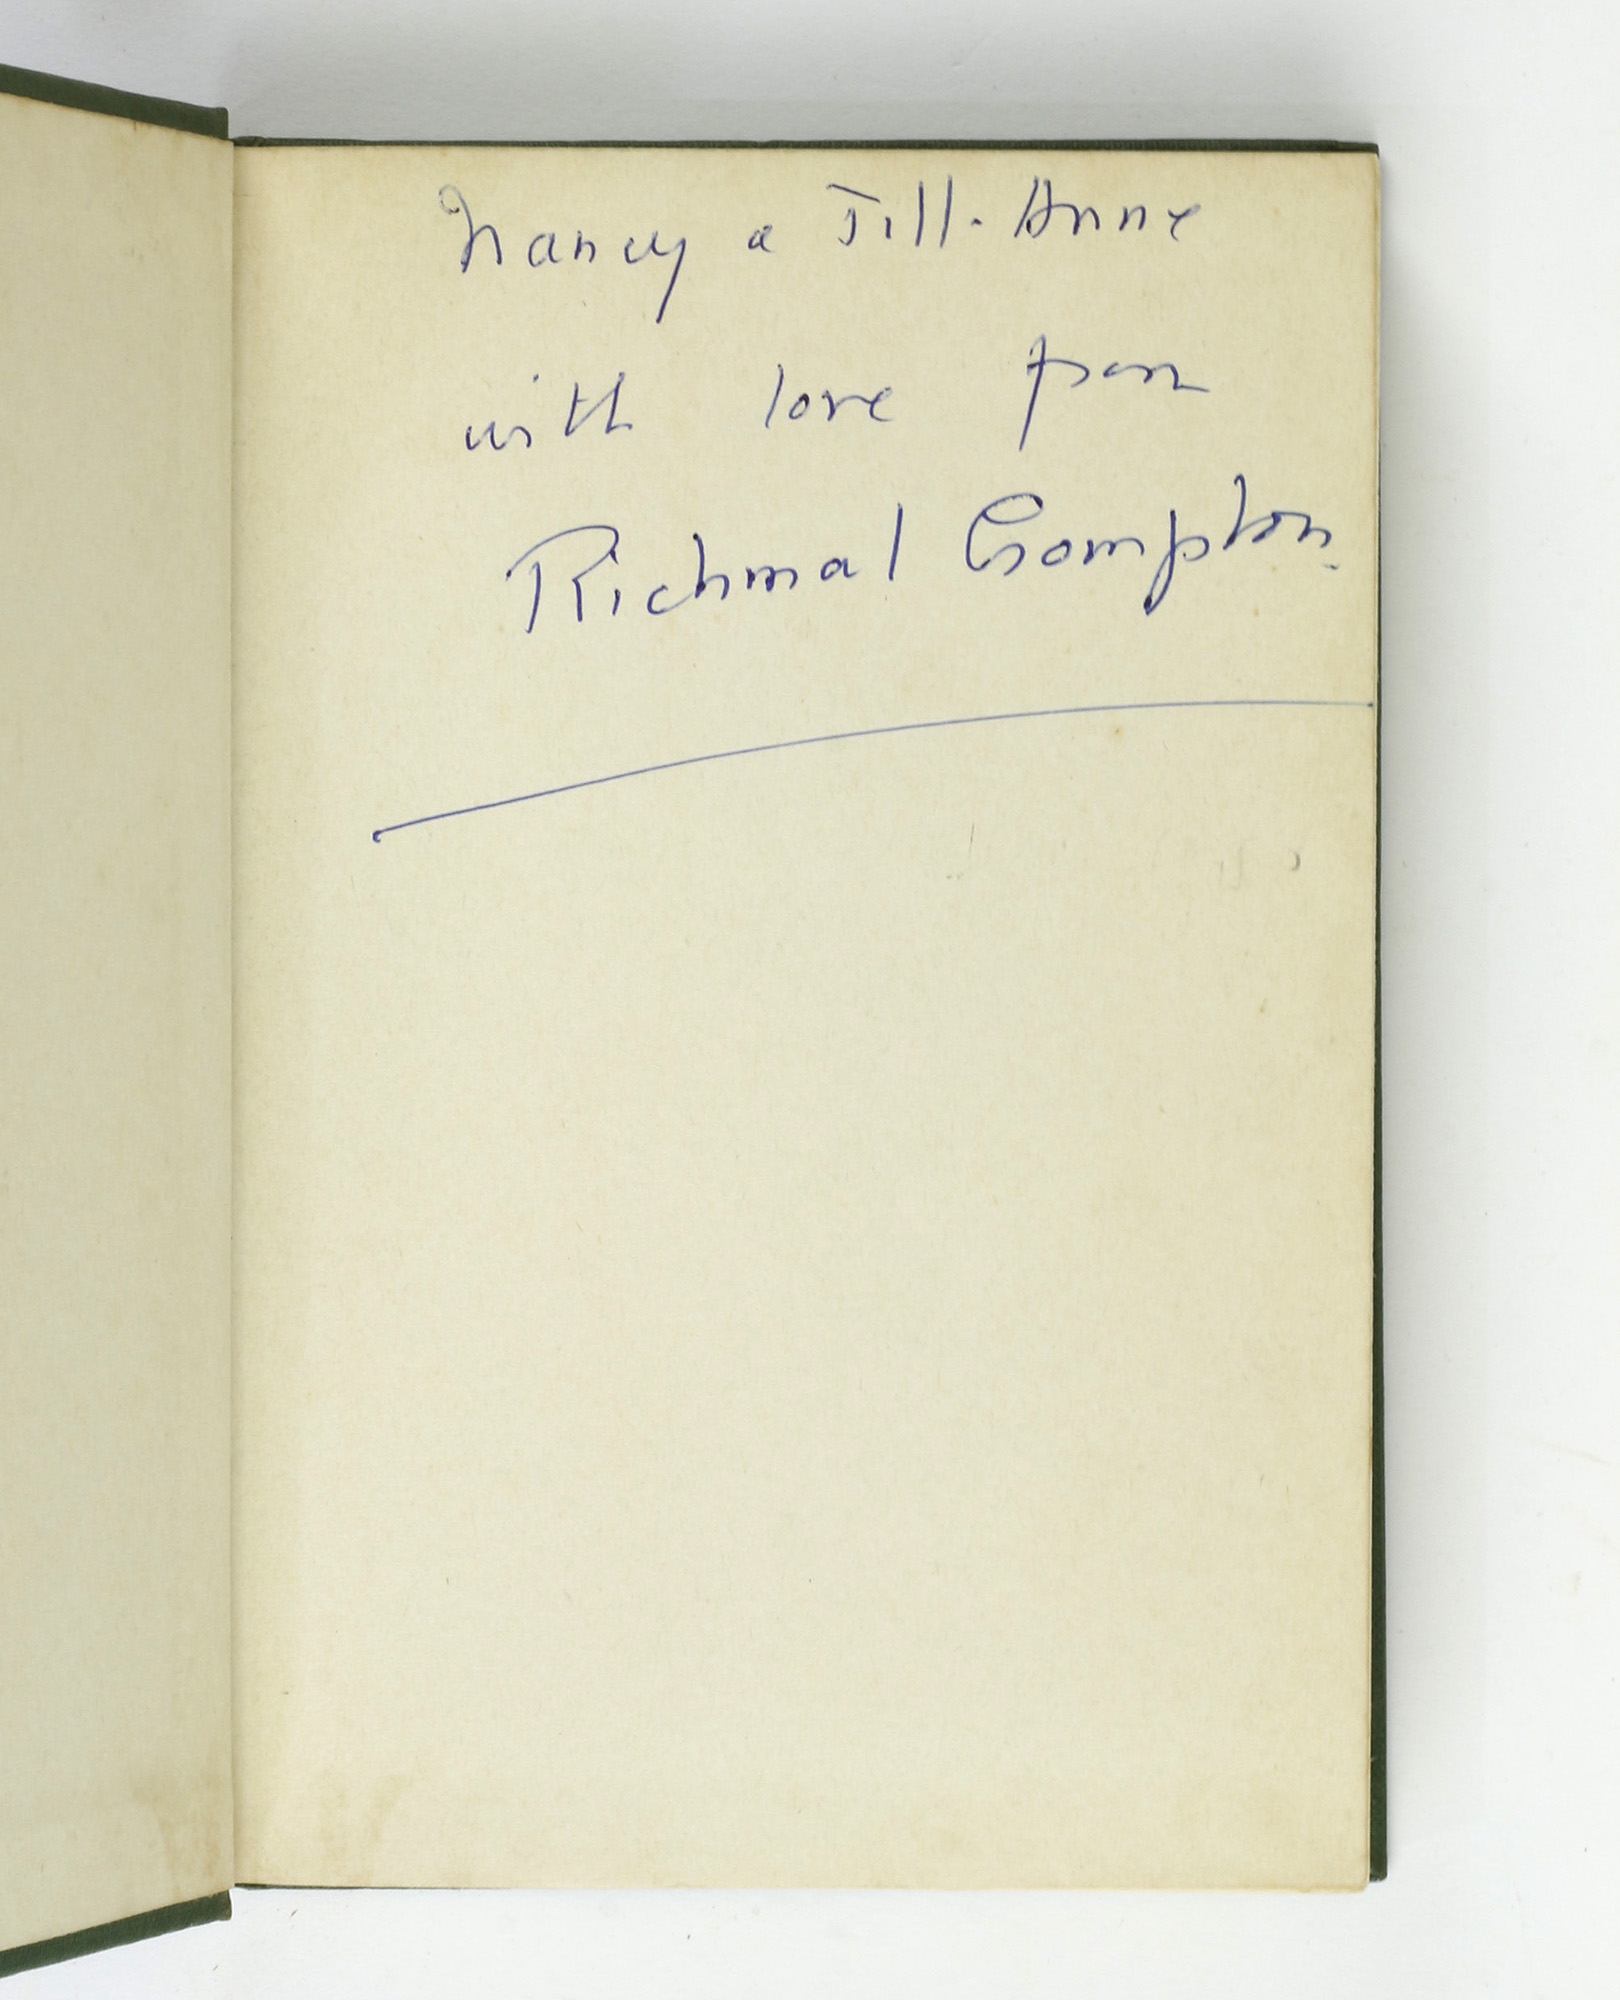 Nancy & Jill-Anne
with love from
Richmal Crompton.